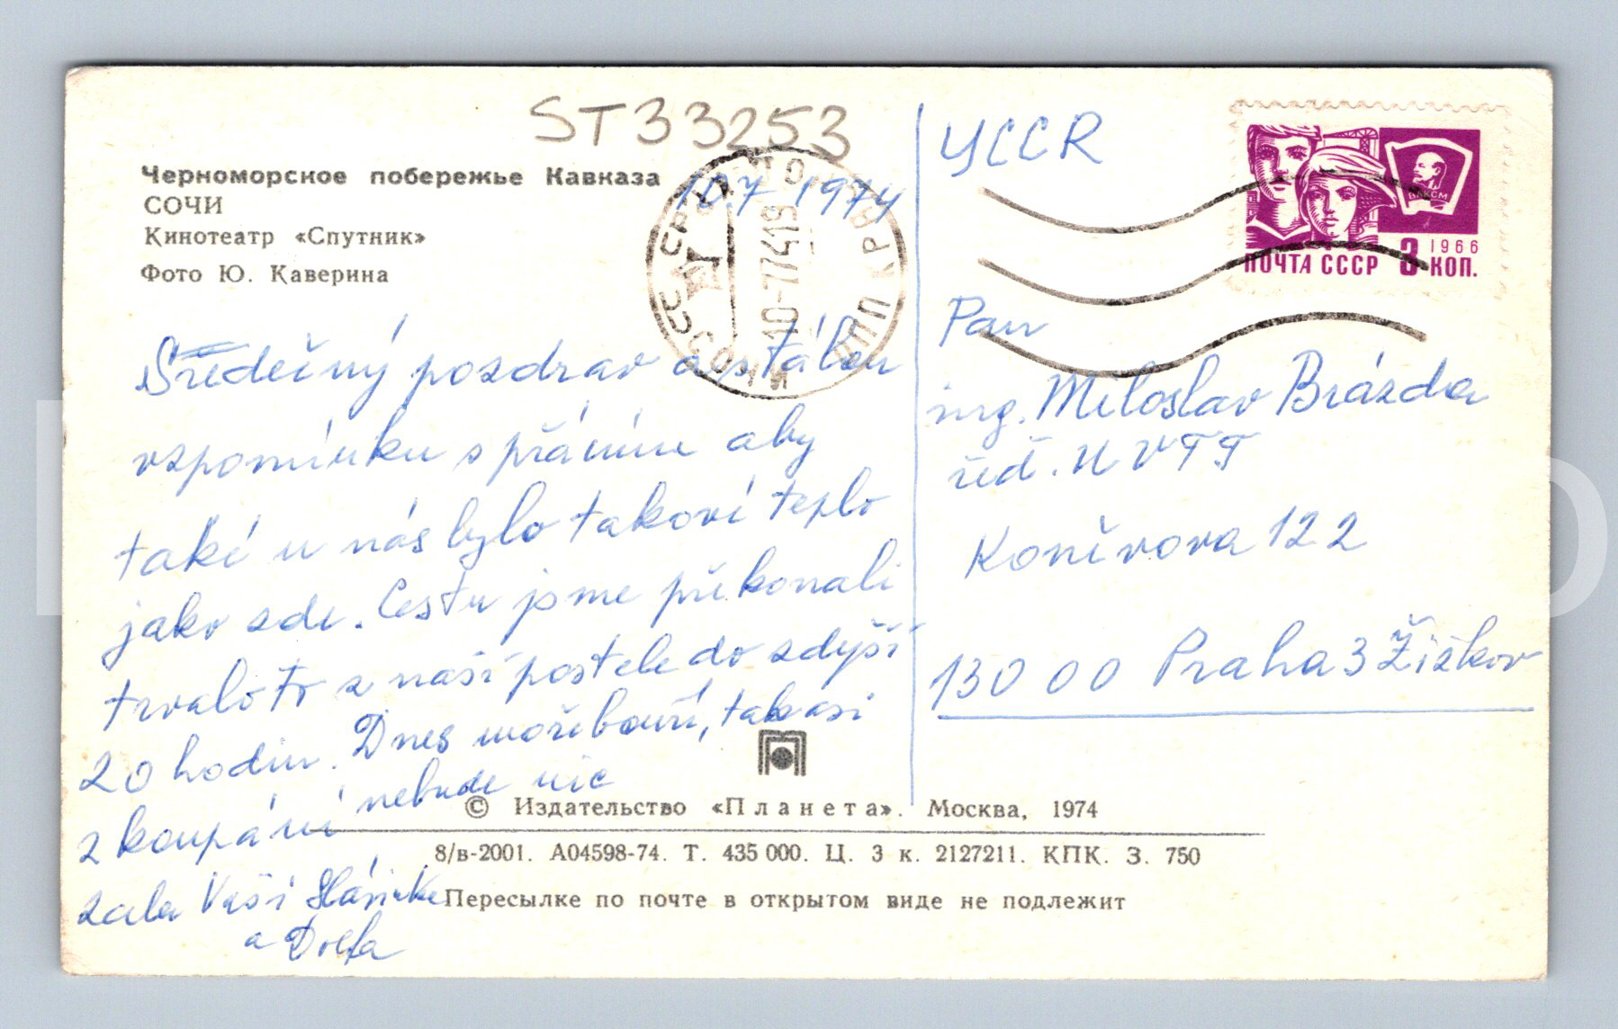 ST33253
Черноморское побережье Кавказа
СОЧИ
Кинотеатр «Спутник»
Фото Ю. Каверина
10.7 1974
СССР СОЧИ
10-7-7419
Srdečný pozdrav a stálou
vzpomínku s přáním aby
také u nás bylo takové teplo
jako zde. Cestu jsme překonali
trvalo to z naší postele do zdyší
20 hodin. Dnes moře bouří, tak asi
z koupání nebude nic
zdar Vaši Slávinka
a Dolfa
ЧССR
1966
ПОЧТА СССР 3 КОП.
ВЛКСМ
Pan
ing. Miloslav Brázda
řed. UVTT
Koněvova 122
130 00 Praha 3 Žižkov
© Издательство «Планета». Москва, 1974
8/в-2001. А04598-74. Т. 435 000. Ц. 3 к. 2127211. КПК. З. 750
Пересылке по почте в открытом виде не подлежит